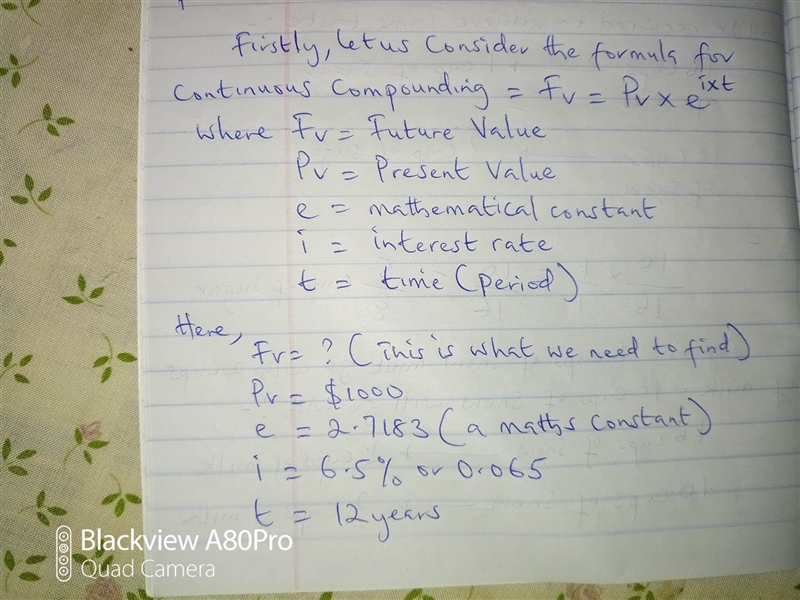 Firstly, let us Consider the formula for
Continuous Compounding = Fv = Pv x e^ixt
where Fv = Future Value
Pv = Present Value
e = mathematical constant
i = interest rate
t = time (Period)
Here,
Fv = ? (This is what we need to find)
Pv = $1000
e = 2.7183 (a maths constant)
i = 6.5% or 0.065
t = 12 years
Blackview A80Pro
Quad Camera